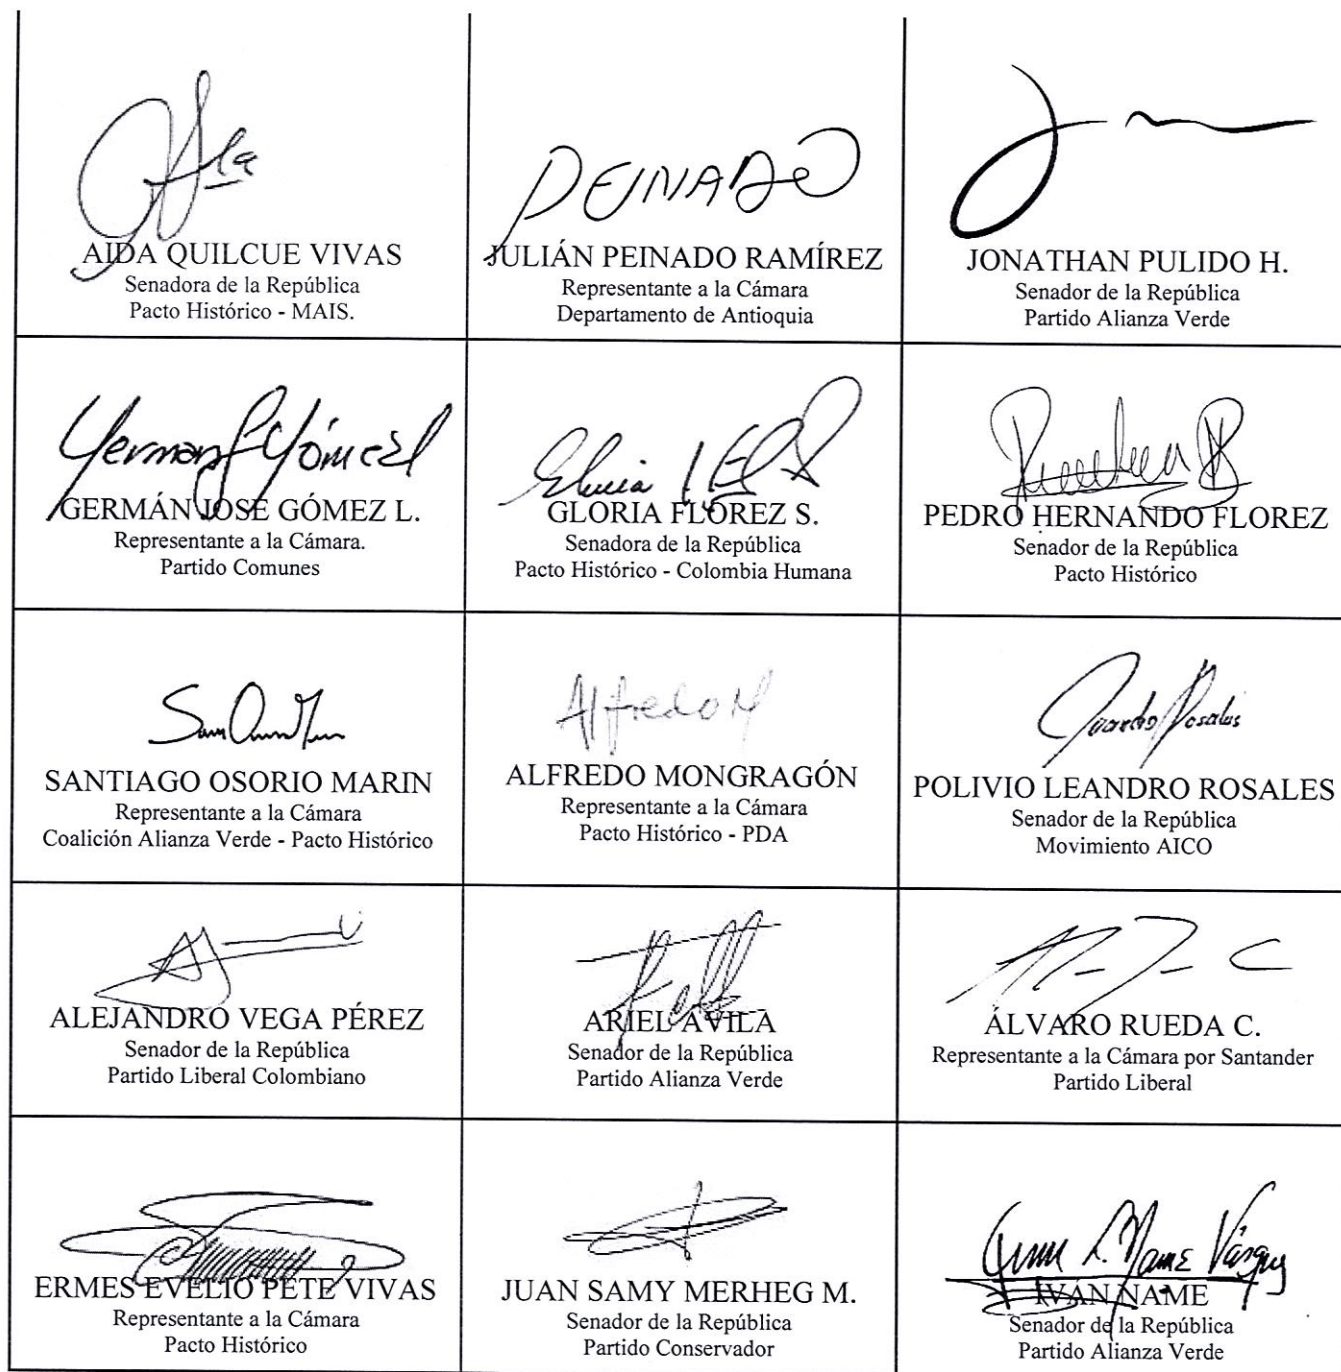 PEINADO
AIDA QUILCUE VIVAS
Senadora de la República
Pacto Histórico - MAIS.
JULIÁN PEINADO RAMÍREZ
Representante a la Cámara
Departamento de Antioquia
JONATHAN PULIDO H.
Senador de la República
Partido Alianza Verde
GERMÁN JOSE GÓMEZ L.
Representante a la Cámara.
Partido Comunes
GLORIA FLÓREZ S.
Senadora de la República
Pacto Histórico - Colombia Humana
PEDRO HERNANDO FLOREZ
Senador de la República
Pacto Histórico
SANTIAGO OSORIO MARIN
Representante a la Cámara
Coalición Alianza Verde - Pacto Histórico
Alfredo M
ALFREDO MONGRAGÓN
Representante a la Cámara
Pacto Histórico - PDA
Rosales
POLIVIO LEANDRO ROSALES
Senador de la República
Movimiento AICO
ALEJANDRO VEGA PÉREZ
Senador de la República
Partido Liberal Colombiano
ARIEL ÁVILA
Senador de la República
Partido Alianza Verde
ÁLVARO RUEDA C.
Representante a la Cámara por Santander
Partido Liberal
ERMES EVELIO PETE VIVAS
Representante a la Cámara
Pacto Histórico
JUAN SAMY MERHEG M.
Senador de la República
Partido Conservador
Name Vásquez
IVÁN NAME
Senador de la República
Partido Alianza Verde